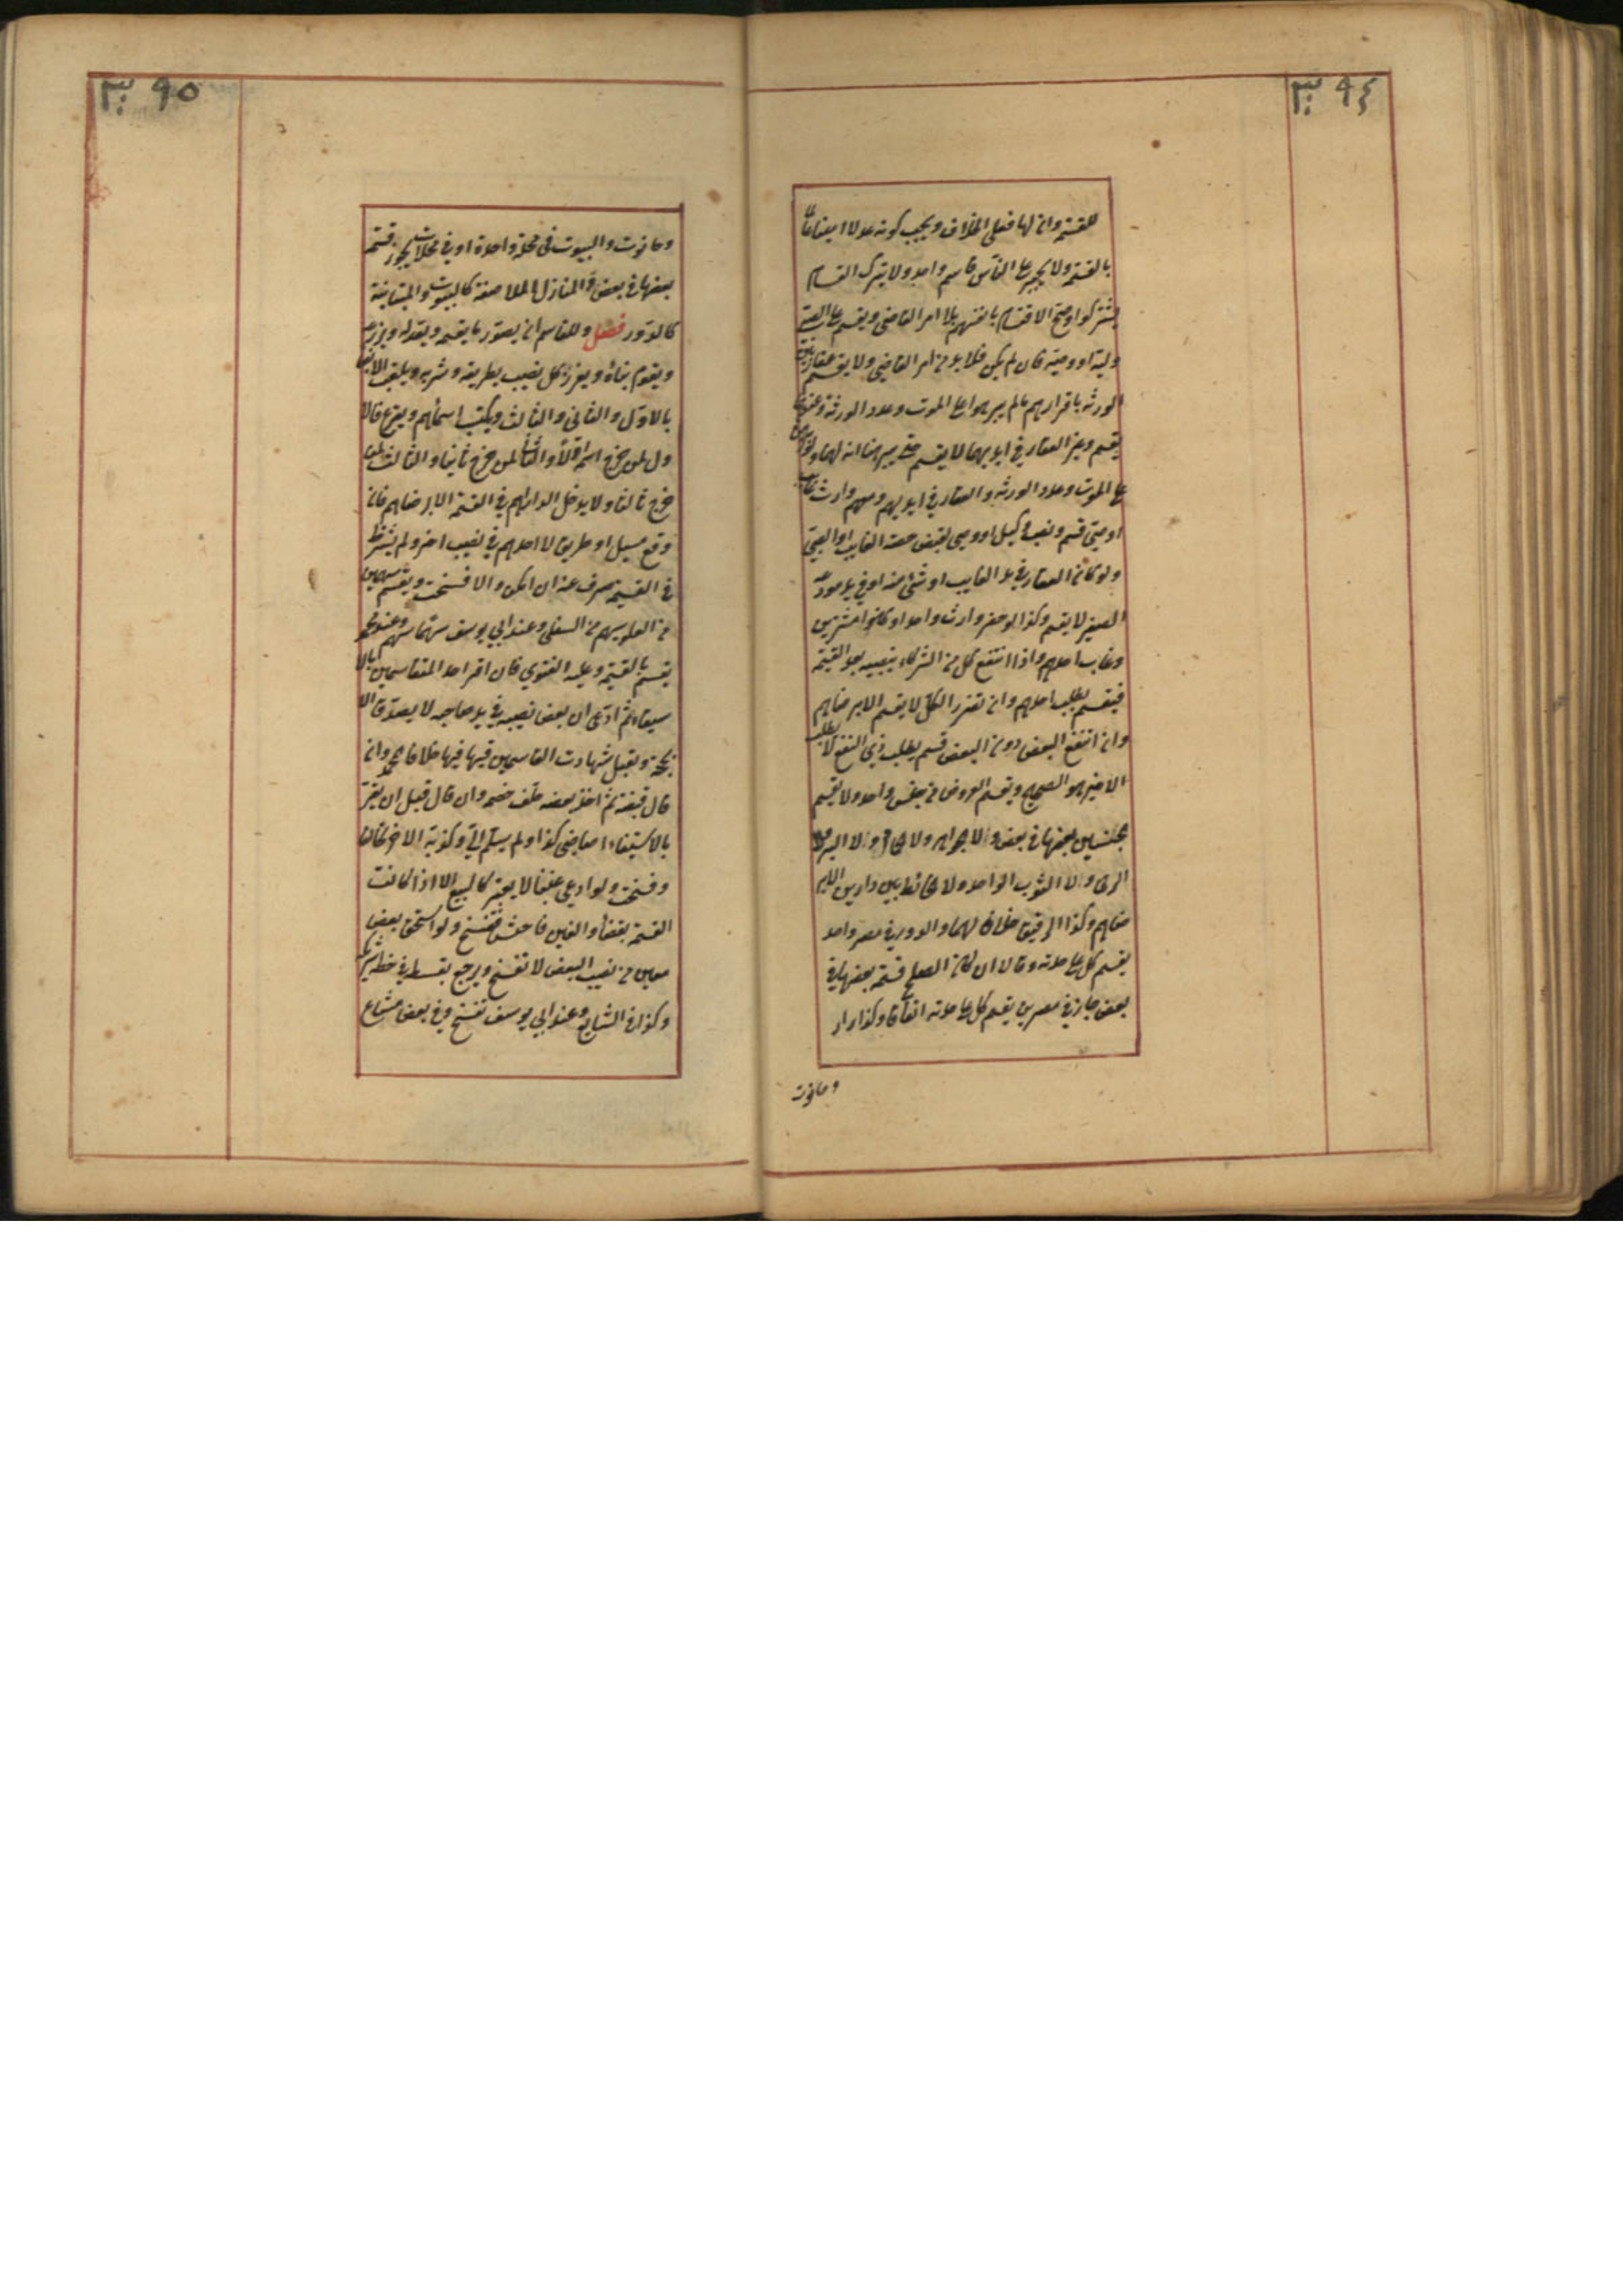 ٩٤
للقسمة وان لها فعلى الخلاف ويجب كونه عدلا امينا عالما
بالقسمة ولا يجبر على الناس قاسم واحد ولا يترك القسام
يشتركوا وصح الاقتسام بانفسهم بلا امر القاضي ويقسم على الصبي
وليه او وصيه فان لم يكن فلا بد من امر القاضي ولا يقسم عقار بين
الورثة باقرارهم ما لم يبرهنوا على الموت وعدد الورثة وعندهما
يقسم وغير العقار في ايديهما لا يقسم حتى يبرهنا انه لهما ولو برهنا
على الموت وعدد الورثة والعقار في ايديهم ومنهم وارث غايب
او صبي قسم ونصب وكيل او وصي لقبض حصة الغايب او الصبي
ولو كان العقار في يد الغايب او شئ منه او في يد مودعه
الصغير لا يقسم وكذا لو حضر وارث واحد او كانوا مشترين
وغاب احدهم واذا انتفع كل من الشركاء بنصيبه بعد القسمة
فيقسم بطلب احدهم وان تضرر الكل لا يقسم الا برضاهم
وان انتفع البعض دون البعض قسم بطلب ذي النفع لا بطلب
الاخير هو الصحيح ويقسم العروض من جنس واحد ولا يقسم
جنسين بعضها في بعض ولا الجواهر ولا الحمام ولا البير ولا
الرحى ولا الثوب الواحد ولا الحائط بين دارين الا بر
ضاهم وكذا الرقيق خلافا لهما والدور في مصر واحد
يقسم كل على حدته وقالا ان كان الصلح قسمة بعضها في
بعض جاز وفي مصرين يقسم كل على حدته اتفاقا وكذا دار
وحانوت
٩٥
وحانوت والبيوت في محلة واحدة او في محلات يجوز قسمة
بعضها في بعض والمنازل الملاصقة كالبيوت والمتباينة
كالدور فصل وللقاسم ان يصور ما يقسمه ويعدله ويذرعه
ويقوم بناؤه ويفرز كل نصيب بطريقه وشربه ويلقب الانصباء
بالاول والثاني والثالث ويكتب اسمائهم ويقرع فالا
ول لمن خرج اسمه اولا والثاني لمن خرج ثانيا والثالث لمن
خرج ثالثا ولا يدخل الدراهم في القسمة الا برضاهم فان
وقع مسيل او طريق لاحدهم في نصيب اخر ولم يشترط
في القسمة صرف عنه ان امكن والا فسخت ويقسم سهمين
من العلو بسهم من السفل وعند ابي يوسف سهما بسهم وعند محمد
يقسم بالقيمة وعليه الفتوي فان اقر احد المتقاسمين بالا
ستيفاء ثم ادعى ان بعض نصيبه في يد صاحبه لا يصدق الا
بحجة وتقبل شهادت القاسمين فيها خلافا لمحمد وان
قال قبضته ثم اخذ بعضه حلف خصمه وان قال قبل ان يقر
بالاستيفاء اصابني كذا ولم يسلم الي وكذبه الاخر تحالفا
وفسخت ولو ادعى غبنا لا يعتبر كالبيع الا اذا كانت
القسمة بقضاء والغبن فاحش فتفسخ ولو استحق بعض
معين من نصيب البعض لا تفسخ ويرجع بقسطه في حظ شريكه
وكذا في الشايع وعند ابي يوسف تفسخ وفي بعض مشاع